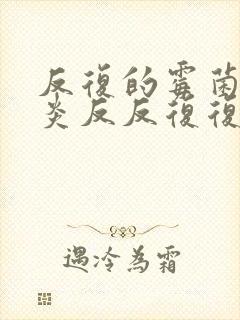 反復的霉菌
炎反反復復
遇冷為霜